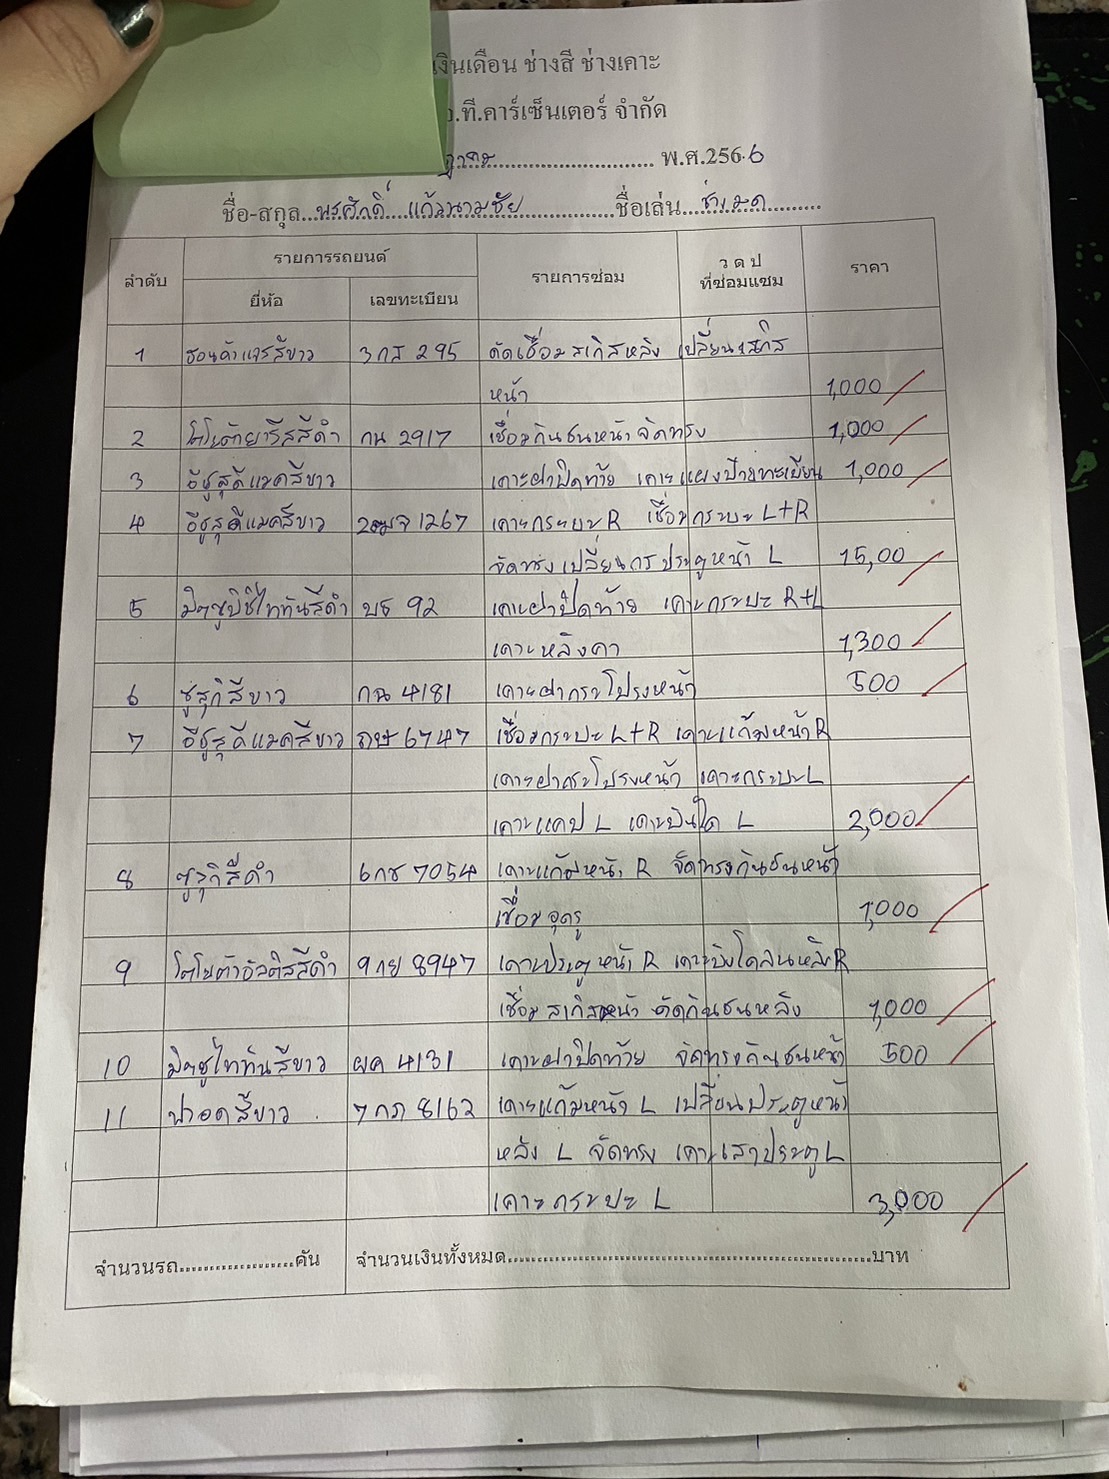 เงินเดือน ช่างสี ช่างเคาะ
.ที.คาร์เซ็นเตอร์ จำกัด
พ.ศ.2566
ชื่อ-สกุล...พรศักดิ์...แก้วนามชัย...ชื่อเล่น...ช่างมด...
ลำดับ รายการรถยนต์ รายการซ่อม ว ด ป ที่ซ่อมแซม ราคา
ยี่ห้อ เลขทะเบียน
1 ฮอนด้าแจสสีขาว 3กส 295 ดัดเชื่อมสเกิสหลัง เปลี่ยนสเกิส
หน้า 1,000
2 โตโยต้ายาริสสีดำ กน 2917 เชื่อมกันชนหน้าจัดทรง 1,000
3 อีซูสุดีแมคสีขาว เคาะฝาปิดท้าย เคาะแผงป้ายทะเบียน 1,000
4 อีซูสุดีแมคสีขาว 1267 เคาะกระบะ R เชื่อมกระบะ L+R
จัดทรง เปลี่ยนกรประตูหน้า L 15,00
5 มิตซูบิชิไททันสีดำ บธ 92 เคาะฝาปิดท้าย เคาะกระบะ R+L
เคาะหลังคา 1,300
6 ซูซุกิสีขาว กฉ 4181 เคาะฝากระโปรงหน้า 500
7 อีซูสุดีแมคสีขาว 6747 เชื่อมกระบะ L+R เคาะแก้มหน้า R
เคาะฝากระโปรงหน้า เคาะกระบะ L
เคาะแคป L เคาะบันใด L 2,000
8 ซูซุกิสีดำ 6กช 7054 เคาะแก้มหน้า R จัดทรงกันชนหน้า
เชื่อมอุดรู 1,000
9 โตโยต้าอัลติสสีดำ 9กย 8947 เคาะประตูหน้า R เคาะบังโคลนหลัง R
เชื่อมสเกิสหน้า ดัดกันชนหลัง 1,000
10 มิตซูไททันสีขาว ผค 4131 เคาะฝาปิดท้าย จัดทรงกันชนหน้า 500
11 ฟอดสีขาว 7กภ 8162 เคาะแก้มหน้า L เปลี่ยนประตูหน้า
หลัง L จัดทรง เคาะเสาประตู L
เคาะกระบะ L 3,000
จำนวนรถ...................คัน จำนวนเงินทั้งหมด...................บาท